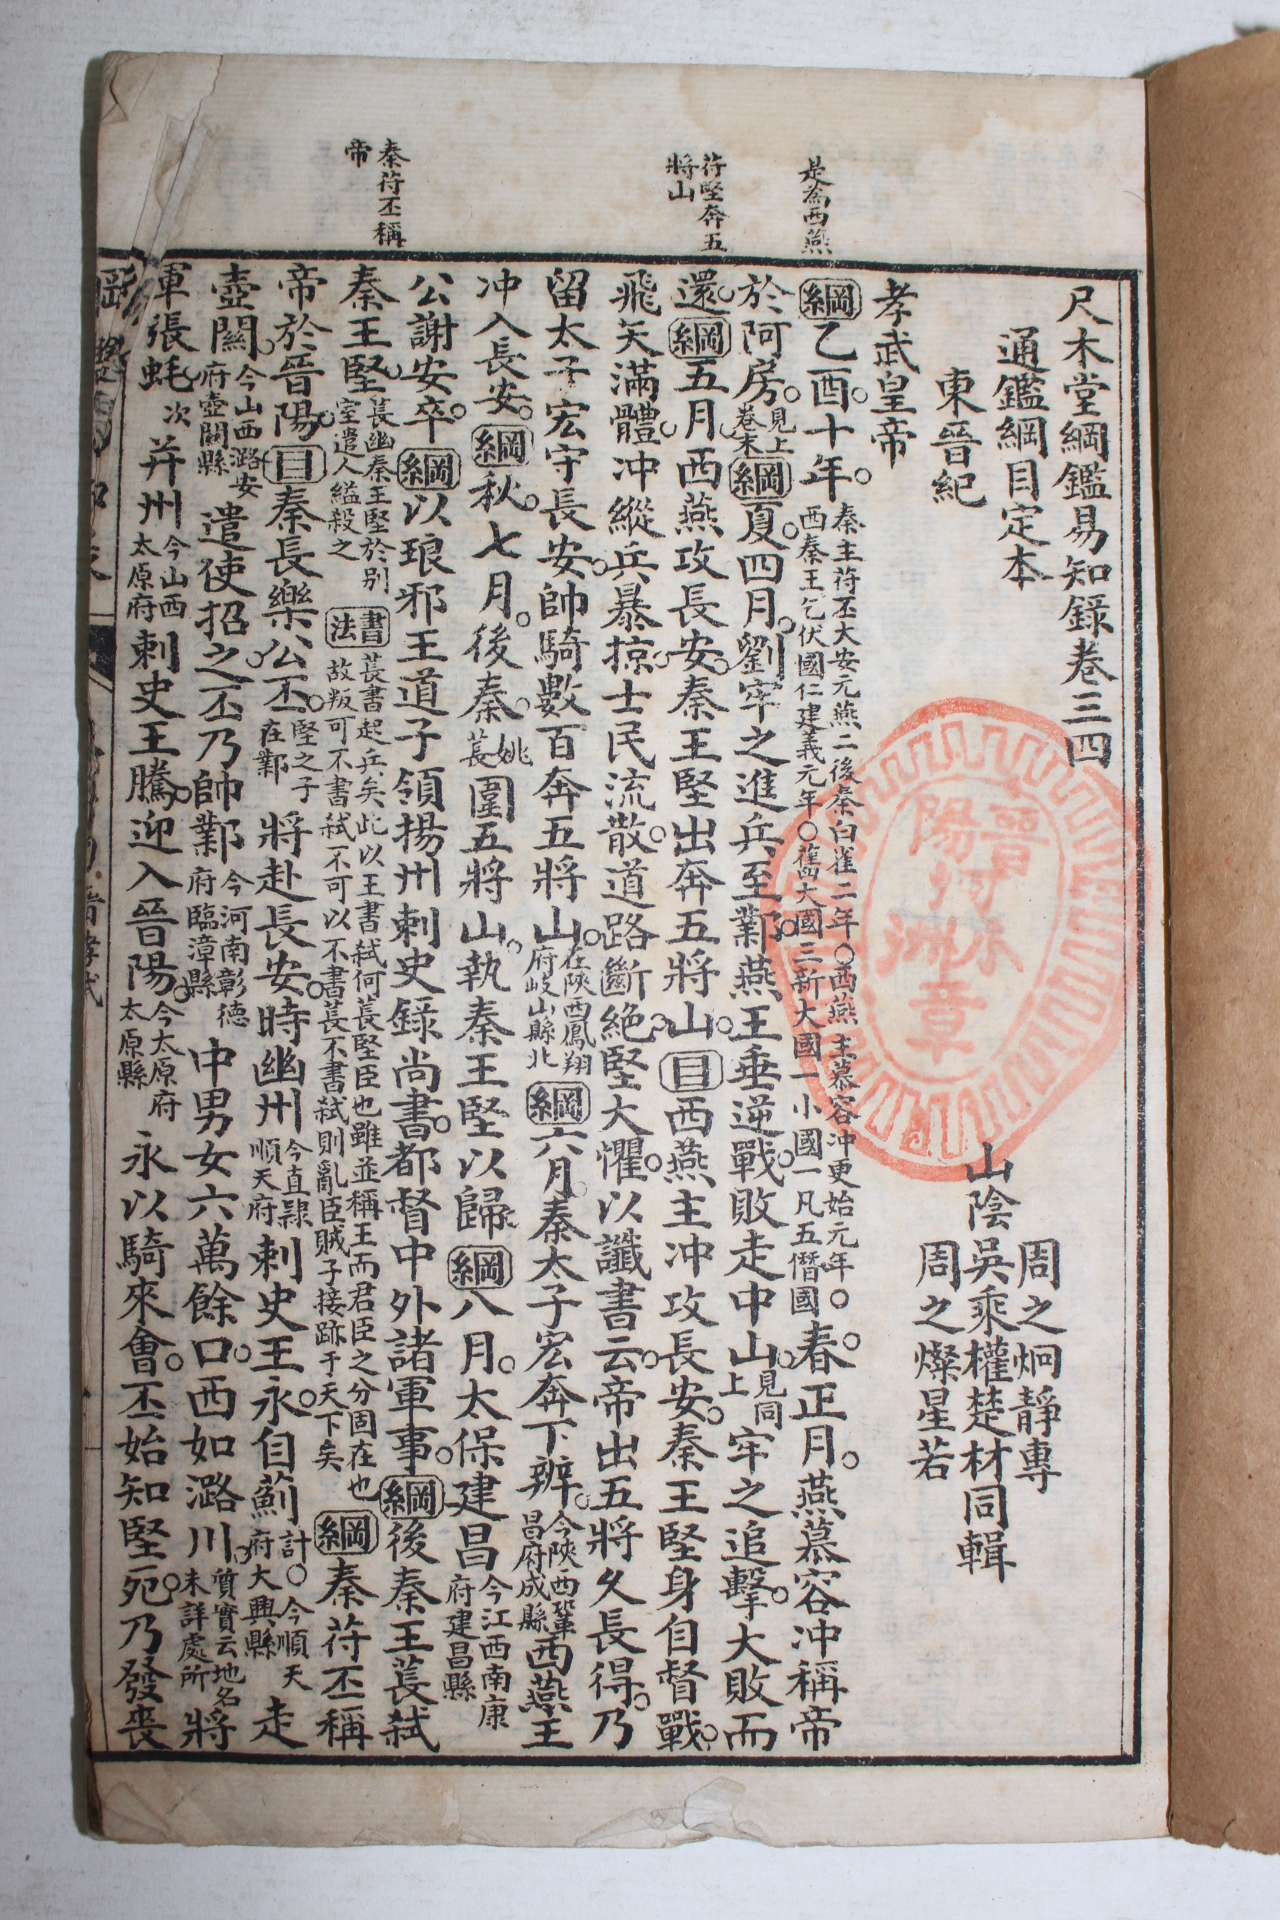 是為西燕
苻堅奔五
將山
秦苻丕稱
帝
尺木堂綱鑑易知錄卷三四
通鑑綱目定本
周之炯靜專
山陰吳乘權楚材同輯
周之燦星若
東晉紀
孝武皇帝
綱乙酉十年。秦主苻丕大安元燕二後秦白雀二年。○西燕主慕容冲更始元年。○西秦王乞伏國仁建義元年○舊大國三新大國一小國一凡五僭國春正月。燕慕容冲稱帝
於阿房。見上卷末綱夏四月。劉牢之進兵至鄴。燕王垂逆戰。敗走中山。見同上牢之追擊。大敗而
還。綱五月。西燕攻長安。秦王堅出奔五將山。目西燕主冲攻長安。秦王堅身自督戰。
飛矢滿體。冲縱兵暴掠。士民流散。道路斷絕。堅大懼。以讖書云。帝出五將久長得。乃
留太子宏守長安。帥騎數百奔五將山。在陝西鳳翔府岐山縣北綱六月。秦太子宏奔下辨。今陝西鞏昌府成縣西燕王
冲入長安。綱秋。七月。後秦。姚萇圍五將山。執秦王堅以歸綱八月。太保建昌今江西南康府建昌縣
公謝安卒。綱以琅邪王道子領揚州刺史錄尚書。都督中外諸軍事。綱後秦王萇弒
秦王堅。萇幽秦王堅於別室遣人縊殺之書法萇書起兵矣此以王書弒何萇堅臣也雖並稱王而君臣之分固在也故叛可不書弒不可以不書萇不書弒則亂臣賊子接跡于天下矣綱秦苻丕稱
帝於晉陽。目秦長樂公丕。堅之子在鄴將赴長安。時幽州今直隸順天府刺史王永。自薊計○今順天府大興縣走
壺關。今山西潞安府壺關縣遣使招之。丕乃帥鄴今河南彰德府臨漳縣中男女六萬餘口。西如潞川。質實云地名未詳處所將
軍張蚝次并州今山西太原府刺史王騰。迎入晉陽。今太原府太原縣永以騎來會。丕始知堅死。乃發喪